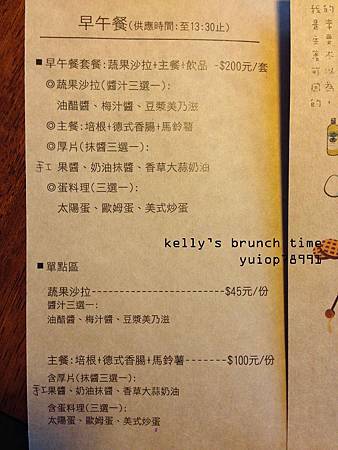 早午餐(供應時間:至13:30止)
■早午餐套餐:蔬果沙拉+主餐+飲品 -$200元/套
◎蔬果沙拉(醬汁三選一):
油醋醬、梅汁醬、豆漿美乃滋
◎主餐:培根+德式香腸+馬鈴薯
◎厚片(抹醬三選一):
手工果醬、奶油抹醬、香草大蒜奶油
◎蛋料理(三選一):
太陽蛋、歐姆蛋、美式炒蛋
kelly's brunch time
■單點區
蔬果沙拉----------------$45元/份
醬汁三選一:
油醋醬、梅汁醬、豆漿美乃滋
主餐:培根+德式香腸+馬鈴薯-------$100元/份
含厚片(抹醬三選一):
手工果醬、奶油抹醬、香草大蒜奶油
含蛋料理(三選一):
太陽蛋、歐姆蛋、美式炒蛋